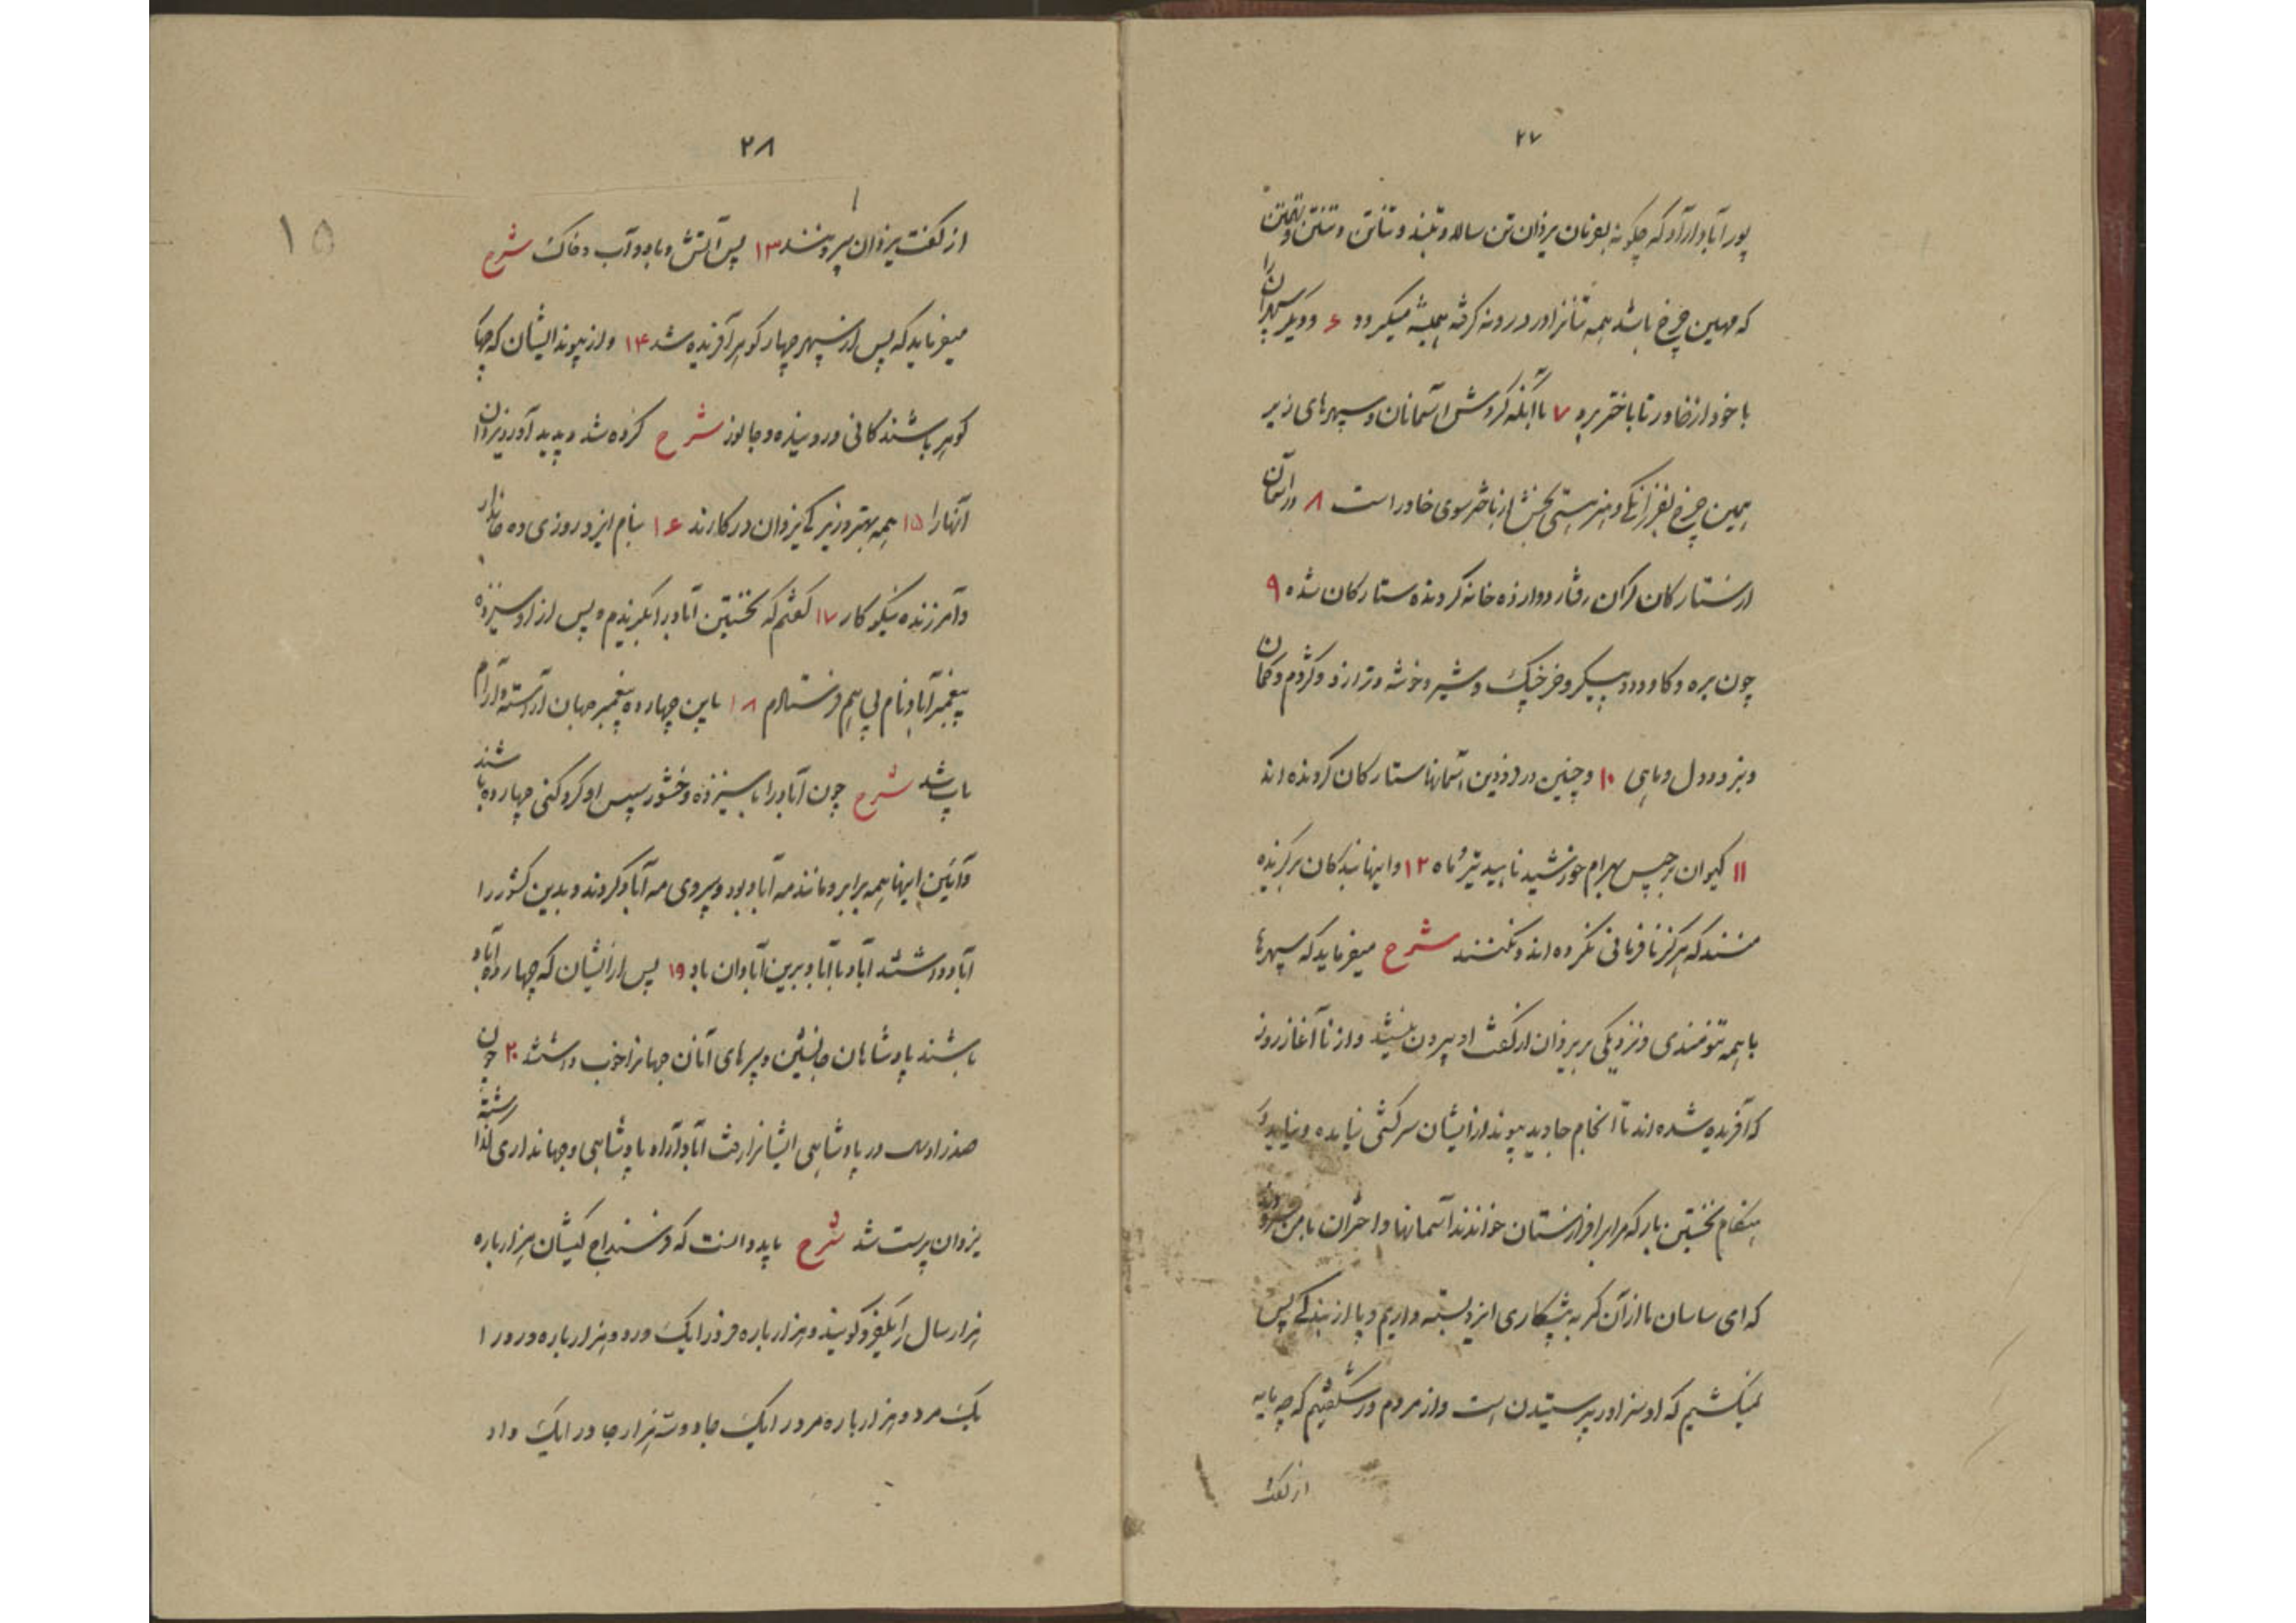 ۲۷
پور آباد آزاد که چگونه بفرمان یزدان تن سالار و تنبد و تناتن و تنتن و تهمتن
که مهین چرخ باشد همه تنانرا در درون گرفته همیشه میگردد ۶ و دیگر سپهران را
با خود از خاور تا باختر برد ۷ با آنکه گردش آسمانان و سپهرهای زیر
همین چرخ بفرزانگی و هنر هستی بخش از باختر سوی خاور است ۸ در آسمان
از ستارگان گران رفتار دوازده خانه گرونده ستارگان شده ۹
چون بره و گاو و دو پیکر و خرچنگ و شیر و خوشه و ترازو و کژدم و کمان
و بز و دول و ماهی ۱۰ و چنین در فرودین آسمانها ستارگان گرونده اند
۱۱ کیوان برجیس بهرام خورشید ناهید تیر و ماه ۱۲ و اینها بندگان برگزیده
هستند که هرگز نافرمانی نکرده اند و نکنند شرح میفرماید که سپهرها
با همه تنومندی و نزدیکی بر یزدان از گفت او بیرون نیند و از نا آغاز روز
که آفریده شده اند تا انجام جاوید پیوند از ایشان سرکشی نیامده و نیاید و
هنگام نخستین بار که مرا بر افرازستان خواندند آسمانها و اختران با من
که ای ساسان ما از آن کمر به پیشکاری ایزد بسته داریم و پا از بندگی پس
نمیکشیم که او سزاوار پرستیدن است و از مردم در شگفتیم که چه مایه
از گفت
۲۸
۱۵
از گفت یزدان بیرونند ۱۳ پس آتش و باد و آب و خاک شرح
میفرماید که پس از سپهر چهار گوهر آفریده شد ۱۴ و از پیوند ایشان که چهار
گوهر باشند کانی و روینده و جانور شرح کرده شد و پدید آورد یزدان
آنها را ۱۵ همه بهتر و زیرکی یزدان در کارند ۱۶ بنام ایزد روزی ده جاندار
و آمرزنده نیکوکار ۱۷ گفتم که نخستین آباد را بگزیدم و پس از او سیزده
پیغمبر آباد نام پی هم فرستادم ۱۸ باین چهارده پیغمبر جهان آراسته و آرام
یاب شد شرح چون آباد را با سیزده وخشور سپس او گرد کنی چهارده باشند
و آئین اینها همه برابر و مانند مه آباد بود و پیروی مه آباد کردند و بدین کشور را
آباد داشتند آباد بآباد و برین آبادان باد ۱۹ پس از ایشان که چهارده آباد
باشند پادشاهان جانشین و پسرهای آنان جهانرا خوب داشتند ۲۰ چون
صد زاد سال در پادشاهی ایشانرا رفت آباد آزاد پادشاهی و جهانداری گذاشته
یزدان پرست شد شرح باید دانست که فرسنداج کیشان هزار باره
هزار سال را یک فرد گویند و هزار باره فرد را یک ورد و هزار باره ورد را
یک مرد و هزار باره مرد را یک جاد و سه هزار جاد را یک واد